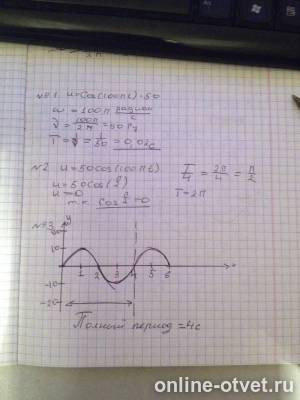 №1. u=Cos(100πt)·50
ω = 100π радиан/с
ν = 100π/2π = 50 Гц
T = 1/ν = 1/50 = 0,02с
№2 u=50cos(100πt)
T/4 = 2π/4 = π/2
u=50Cos
T=2π
u=0
т.к. Cos =0
№3
y
20
10
1 2 3 4 5 6
-10
-20
Полный период =4с
online-otvet.ru